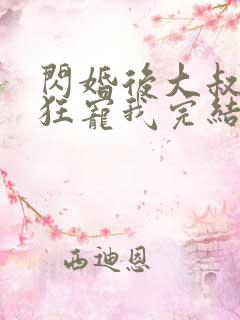 閃婚後大叔
狂寵我完結
西迪恩